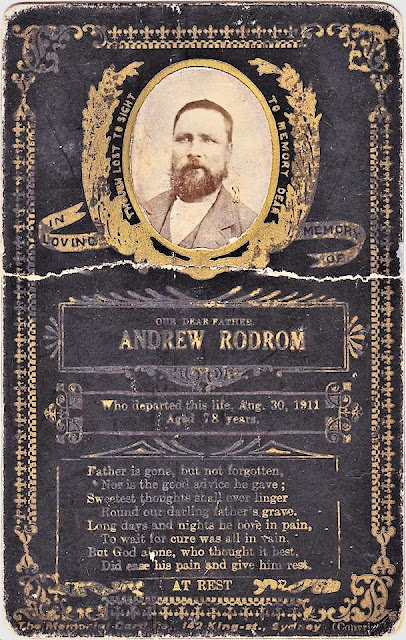 THO' NOW LOST TO SIGHT
TO MEMORY DEAR
IN
LOVING
MEMORY
OF
OUR DEAR FATHER,
ANDREW RODROM
Who departed this life, Aug. 30, 1911
Aged 78 years.
Father is gone, but not forgotten,
Nor is the good advice he gave;
Sweetest thoughts shall ever linger
Round our darling father's grave.
Long days and nights he bore in pain,
To wait for cure was all in vain.
But God alone, who thought it best,
Did ease his pain and give him rest.
AT REST
The Memorial Card Co., 142 King-st., Sydney (Copyright)